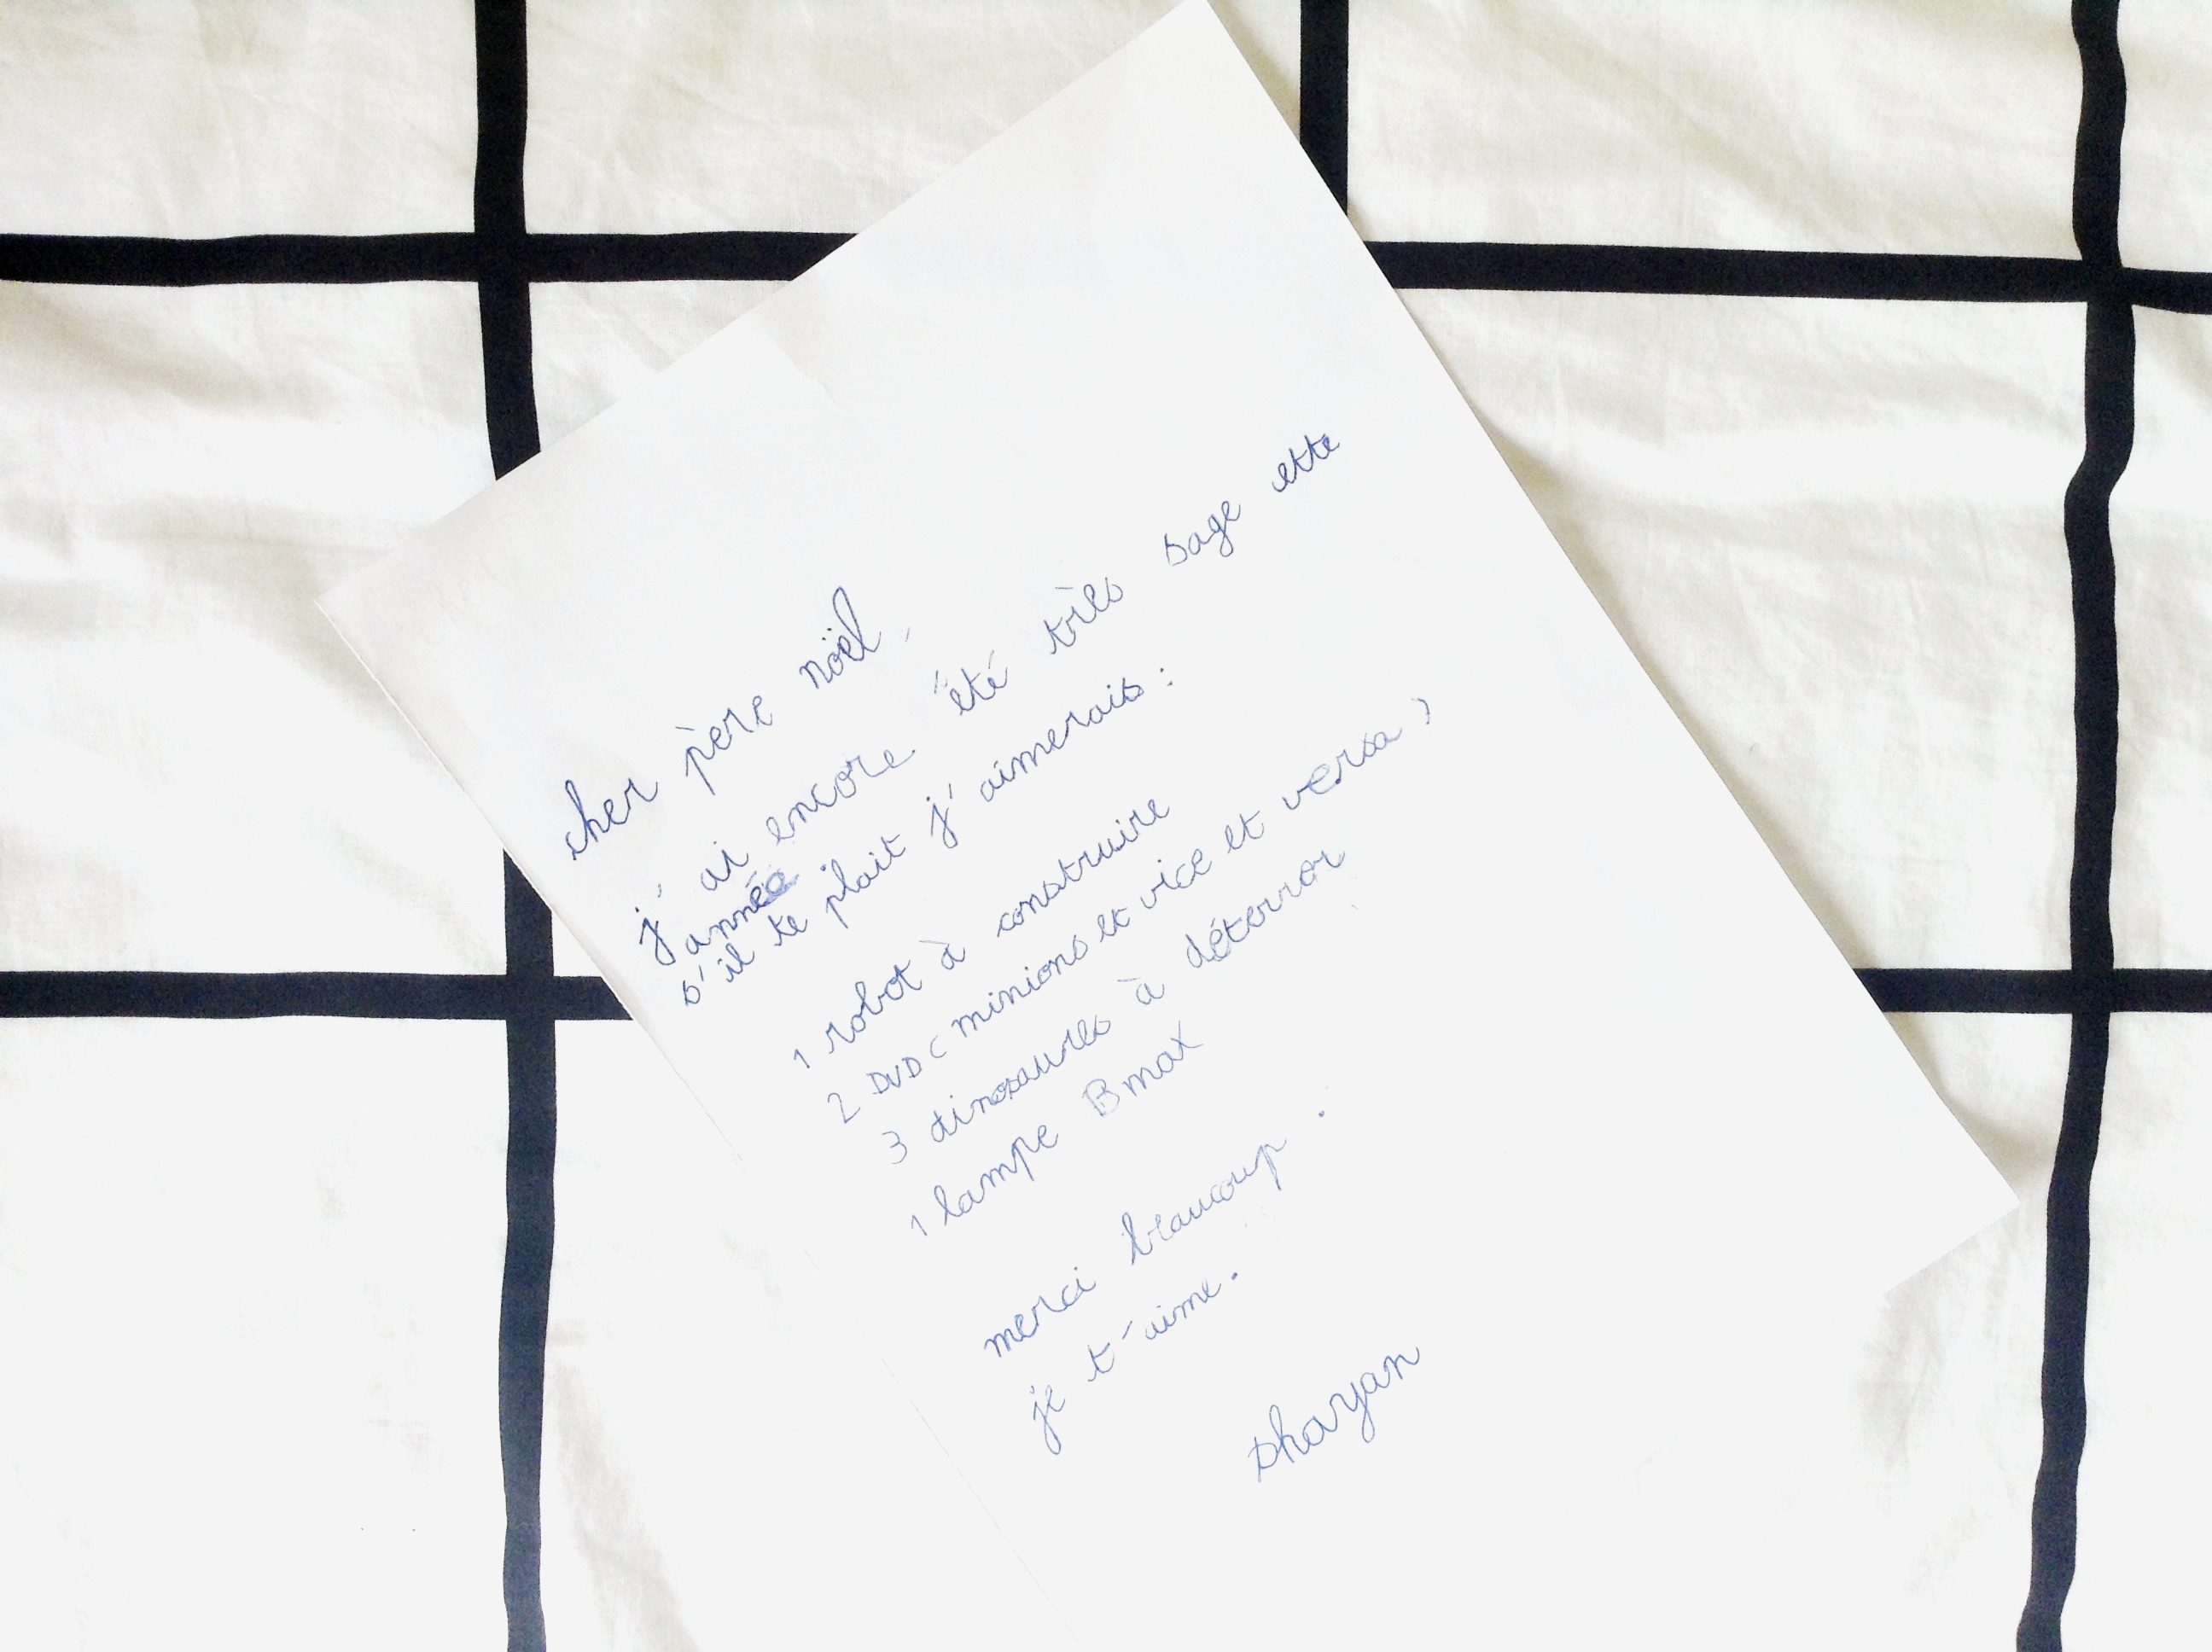 cher père nöel,
j'ai encore été très sage ette
année
s'il te plait j'aimerais :
1 robot à construire
2 DVD ( minions et vice et versa )
3 dinosaures à déterror
1 lampe Bmax
merci beaucoup.
je t'aime.
shayan